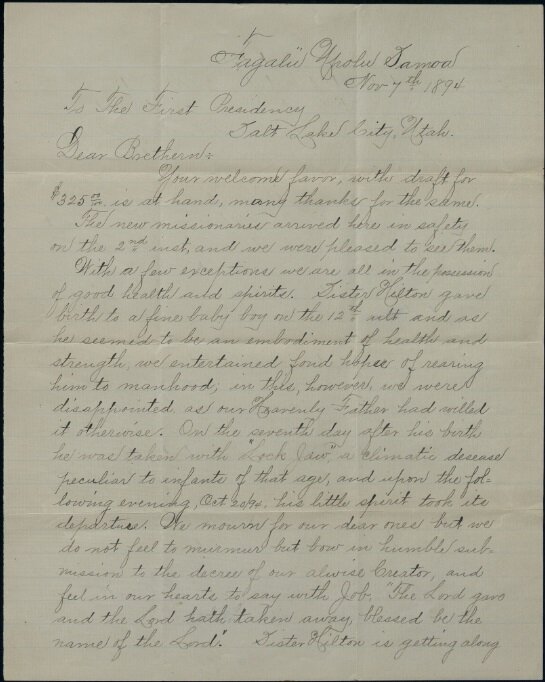 Fagalii Upolu Samoa
Nov 7th 1894
To The First Presidency
Salt Lake City, Utah.
Dear Brethern:
Your welcome favor, with draft for
$325 00/100 is at hand, many thanks for the same.
The new missionaries arrived here in safety
on the 2nd inst, and we were pleased to see them.
With a few exceptions we are all in the possession
of good health and spirits. Sister Hilton gave
birth to a fine baby boy on the 12th ult and as
he seemed to be an embodiment of health and
strength, we entertained fond hopes of rearing
him to manhood; in this, however, we were
disappointed as our Heavenly Father had willed
it otherwise. On the seventh day after his birth
he was taken with "Lock Jaw", a climatic desease
peculiar to infants of that age, and upon the fol=
lowing evening, Oct 20/94, his little spirit took its
departure. We mourn for our dear ones but we
do not feel to murmur but bow in humble sub=
mission to the decree of our alwise Creator, and
feel in our hearts to say with Job. "The Lord gave
and the Lord hath taken away, blessed be the
name of the Lord." Sister Hilton is getting along